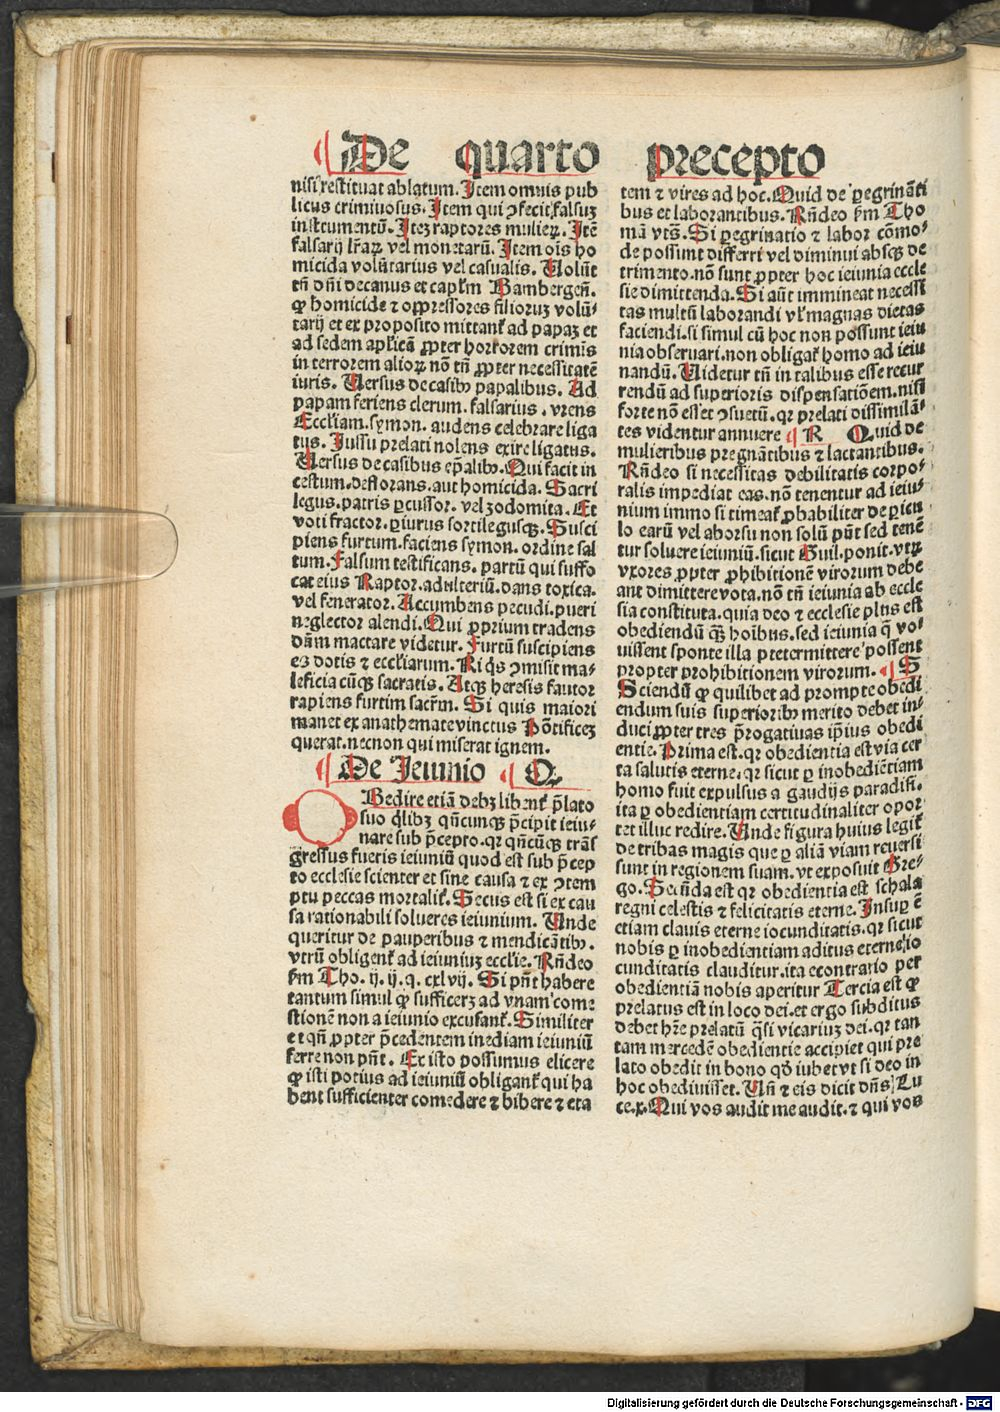 De quarto precepto
nisi restituat ablatum. Item omnis pub
licus criminosus. Item qui ↄfecit falsuꝫ
instrumentū. Iteꝫ raptores mulieꝝ. Itē
falsarij lr̄aꝝ vel monetarū. Item oīs ho
micida volūtarius vel casualis. Uolūt
tn̄ dn̄i decanus et capl'm Bambergen̄.
ꝙ homicide ⁊ oppressores filioruꝫ volū-
tarij et ex proposito mittant' ad papaꝫ et
ad sedem apl'icā ꝓpter horrorem crimis
in terrorem alioꝝ nō tn̄ ꝓpter necessitatē
iuris. Uersus de casibꝰ papalibus. Ad
papam feriens clerum. falsarius. vrens
Eccl'iam. symon. audens celebrare liga
tus. Iussu prelati nolens exire ligatus.
Uersus de casibus ep̄alibꝰ. Qui facit in
cestum. deflorans. aut homicida. Sacri
legus. patris ꝑcussor. vel zodomita. Et
voti fractor. ꝑiurus sortilegusqꝫ. Susci
piens furtum. faciens symon. ordine sal
tum. Falsum testificans. partū qui suffo
cat eius Raptor. adulteriū. dans toxica.
vel fenerator. Accumbens pecudi. pueri
neglector alendi. Qui ꝓprium tradens
dām mactare videtur. Furtū suscipiens
eꝫ dotis ⁊ eccl'iarum. Ri qͥs ↄmisit ma-
leficia cūqꝫ sacratis. Atqꝫ heresis fautor
rapiens furtim sacr̄m. Si quis maiori
manet ex anathemate vinctus Pōtificeꝫ
querat. necnon qui miserat ignem.
De Ieiunio Q
OBedire etiā debꝫ libent' p̄lato
suo q̄libꝫ qn̄cunqꝫ p̄cipit ieiu-
nare sub p̄cepto. qꝛ qn̄cūqꝫ trās
gressus fueris ieiuniū quod est sub p̄cep
to ecclesie scienter et sine causa ⁊ ex ↄtem
ptu peccas mortalit'. Secus est si ex cau
sa rationabili solueres ieiunium. Unde
queritur de pauperibus ⁊ mendicātibꝰ.
vtrū obligent' ad ieiuniuꝫ eccl'ie. Rn̄deo
ẜm Tho. ij. ij. q. cxlvij. Si pn̄t habere
tantum simul ꝙ sufficerꝫ ad vnam come
stionē non a ieiunio excusant'. Similiter
et qn̄ ꝓpter p̄cedentem inediam ieiuniū
ferre non pn̄t. Ex isto possumus elicere
ꝙ isti potius ad ieiuniū obligant' qui ha
bent sufficienter comedere ⁊ bibere ⁊ eta
tem ⁊ vires ad hoc. Quid de ꝑegrināti
bus et laborantibus. Rn̄deo ẜm Tho
mā vts̄. Si ꝑegrinatio ⁊ labor cōmo-
de possunt differri vel diminui absqꝫ de
trimento. nō sunt ꝓpter hoc ieiunia eccle
sie dimittenda. Si aūt immineat necessi
tas multū laborandi vl' magnas dietas
faciendi. si simul cū hoc non possunt ieiu
nia obseruari. non obligat' homo ad ieiu
nandū. Uidetur tn̄ in talibus esse recur
rendū ad superioris dispensatiōem. nisi
forte nō esset ↄsuetū. qꝛ prelati dissimilā-
tes videntur annuere R Quid de
mulieribus pregnātibus ⁊ lactantibus.
Rn̄deo si necessitas debilitatis corpo-
ralis impediat eas. nō tenentur ad ieiu-
nium immo si timeat' ꝓbabiliter de ꝑicu
lo earū vel aborsu non solū pn̄t sed tenē
tur soluere ieiuniū. sicut Guil. ponit. vtꝝ
vxores ꝓpter ꝓhibitionē virorum debe
ant dimittere vota. nō tn̄ ieiunia ab eccle
sia constituta. quia deo ⁊ ecclesie plus est
obediendū qꝫ̄ hoībus. sed ieiunia q̄ vo-
uissent sponte illa pretermittere possent
propter prohibitionem virorum. S
Sciendū ꝙ quilibet ad prompte obedi
endum suis superioribꝰ merito debet in-
duci ꝓpter tres p̄rogatiuas ip̄ius obedi
entie. Prima est. qꝛ obedientia est via cer
ta salutis eterne. qꝛ sicut ꝑ inobediētiam
homo fuit expulsus a gaudijs paradisi.
ita ꝑ obedientiam certitudinaliter opor
tet illuc redire. Unde figura huius legit'
de tribus magis que ꝑ aliā viam reuersi
sunt in regionem suam. vt exposuit Gre-
go. Secūda est qꝛ obedientia est schala
regni celestis ⁊ felicitatis eterne. Insuꝑ ē
etiam clauis eterne iocunditatis. qꝛ sicut
nobis ꝑ inobedientiam aditus eterne io
cunditatis clauditur. ita econtrario per
obedientiā nobis aperitur Tercia est ꝙ
prelatus est in loco dei. et ergo subditus
debet hr̄e prelatū q̄si vicariuꝫ dei. qꝛ tan
tam mercedē obedientie accipiet qui pre
lato obedit in bono qd̄ iubet vt si deo in
hoc obediuisset. Un̄ ⁊ eis dicit dn̄s Lu
ce. x. Qui vos audit me audit. ⁊ qui vos
Digitalisierung gefördert durch die Deutsche Forschungsgemeinschaft - DFG